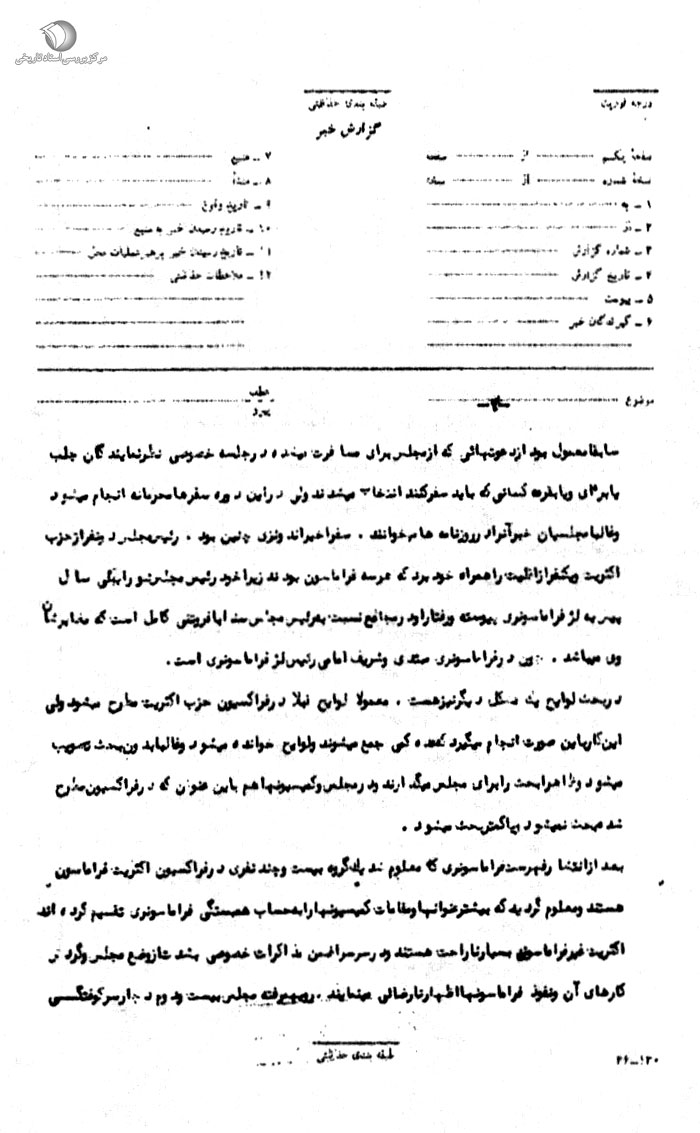 مرکز بررسی اسناد تاریخی
درجه فوریت
طبقه بندی حفاظتی
گزارش خبر
صفحهٔ یکم از صفحه
نسخهٔ شماره از نسخه
۱ ـ به
۲ ـ از
۳ ـ شماره گزارش
۴ ـ تاریخ گزارش
۵ ـ پیوست
۶ ـ گیرندگان خبر
۷ ـ منبع
۸ ـ منشأ
۹ ـ تاریخ وقوع
۱۰ ـ تاریخ رسیدن خبر به منبع
۱۱ ـ تاریخ رسیدن خبر برهبر عملیات محل
۱۲ ـ ملاحظات حفاظتی
موضوع
سابقا معمول بود از دعوتهائی که از مجلس برای مسافرت میشده در جلسه خصوصی نظر نمایندگان جلب
یا برای ویا بقرعه کسانی که باید سفر کنند انتخاب میشدند ولی در این دوره سفرها محرمانه انجام میشود
و غالبا مجلسیان خبر آنرا در روزنامه ها میخوانند . سفر اخیر اندونزی چنین بود . رئیس مجلس دو نفر از حزب
اکثریت ویکنفر از اقلیت را همراه خود برد که هر سه فراماسون بودند زیرا خود رئیس مجلس نیز سال
پیش به لژ فراماسونری پیوسته و رفتار او در مجامع نسبت به رئیس مجلس سنا با فروتنی کامل است که مغایر شأن
وی میباشد . چون در فراماسونری مبتدی و شریف امامی رئیس لژ فراماسونری است .
در بحث لوایح یک مشکل دیگر نیز هست . معمولا لوایح قبلا در فراکسیون حزب اکثریت مطرح میشود ولی
این کار باین صورت انجام میگیرد که عده کمی جمع میشوند و لوایح خوانده میشود و غالبا بدون بحث تصویب
میشود و ظاهرا بحث را برای مجلس میگذارند و در مجلس و کمیسیونها هم باین عنوان که در فراکسیون مطرح
شده بحث نمیشود ویا کمتر بحث میشود .
بعد از انتشار فهرست فراماسونری که معلوم شد یک گروه بیست و چند نفری در فراکسیون اکثریت فراماسون
هستند و معلوم گردید که بیشتر عنوانها و مقامات کمیسیونها را به حساب همبستگی فراماسونری تقسیم کرده اند
اکثریت غیر فراماسون بسیار ناراحت هستند و در سرسرا ضمن مذاکرات خصوصی بشدت از وضع مجلس و گردش
کارهای آن و نفوذ فراماسونها اظهار نارضائی مینمایند . رویهمرفته مجلس بیست و دوم دچار سرکوفتگی
طبقه بندی حفاظتی
۱۲۰ـ۲۶